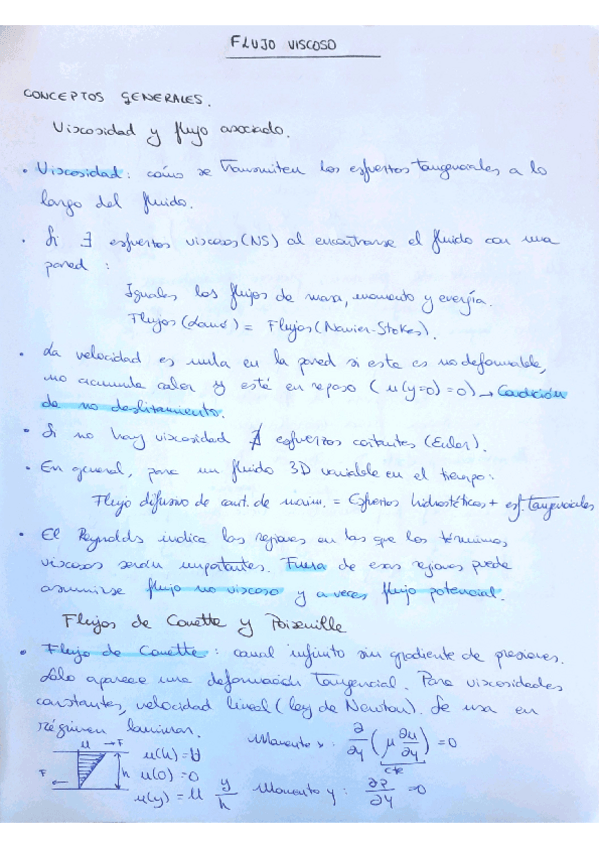 FLUJO VISCOSO
CONCEPTOS GENERALES.
Viscosidad y flujo asociado.
• Viscosidad: cómo se transmiten los esfuertos tangenciales a lo
largo del fluido.
• Si ∃ esfuertos viscosos (NS) al encontrarse el fluido con una
pared :
Iguales los flujos de masa, momento y energía.
Flujos ( ) = Flujos (Navier-Stokes).
• La velocidad es nula en la pared si esta es no deformable,
no acumula calor y esté en reposo ( u(y=0) = 0) → Condición
de no deslitamiento.
• Si no hay viscosidad ∄ esfuerzos cortantes (Euler).
• En general, para un fluido 3D variable en el tiempo:
Flujo difusivo de cant. de movim. = Esfuertos hidrostáticos + esf. tangenciales
• El Reynolds indica las regiones en las que los términos
viscosos serán importantes. Fuera de esas regiones puede
asumirse flujo no viscoso y a veces flujo potencial.
Flujos de Couette y Poiseuille
• Flujo de Couette : canal infinito sin gradiente de presiones.
Sólo aparece una deformación tangencial. Para viscosidades
constantes, velocidad lineal (ley de Newton). Se usa en
régimen laminar.
Momento x : ∂/∂y (μ ∂u/∂y) = 0
cte
u → F
F ←
h
u(h) = U
u(0) = 0
u(y) = U y/h
Momento y : ∂P/∂y = 0